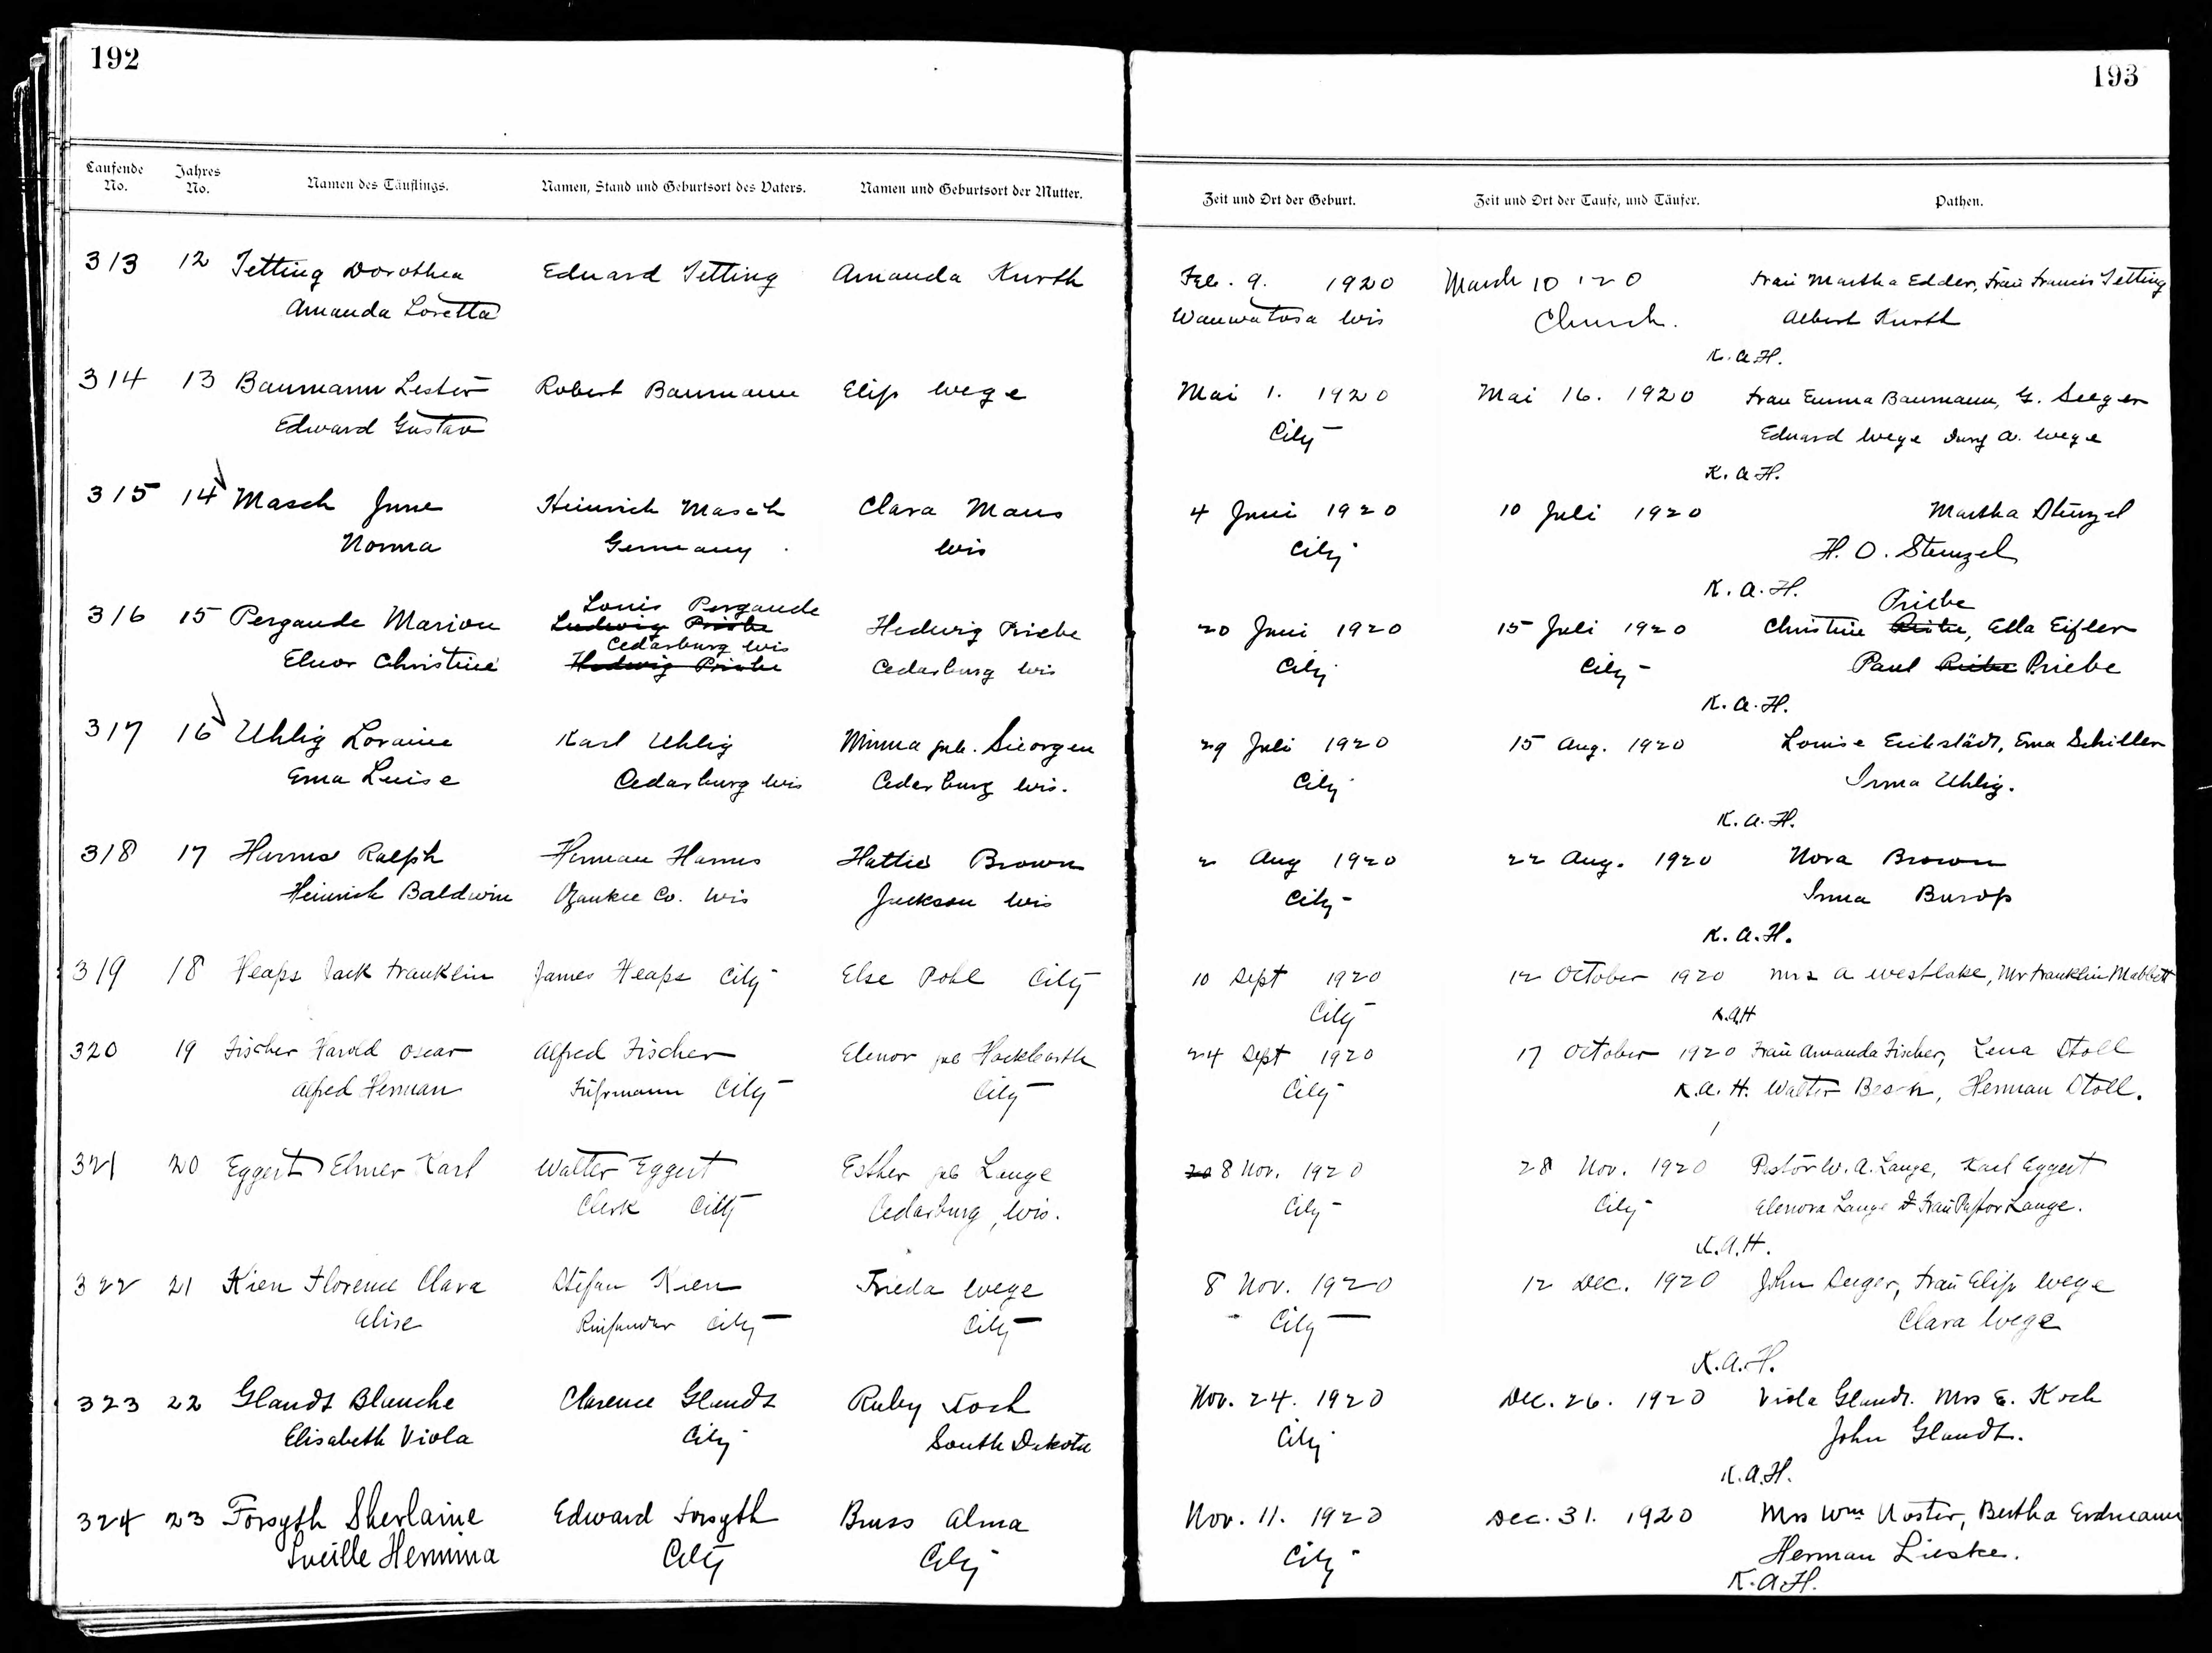 192
193
Laufende No.
Jahres No.
Namen des Täuflings.
Namen, Stand und Geburtsort des Vaters.
Namen und Geburtsort der Mutter.
Zeit und Ort der Geburt.
Zeit und Ort der Taufe, und Täufer.
Pathen.
313 12 Tetting Dorothea Eduard Tetting Amanda Kurth Feb. 9. 1920 March 10 '20 Frau Martha Edder, Frau Francis Tetting
Amanda Loretta Wauwatosa Wis Church. Albert Kurth
K. A. H.
314 13 Baumann Lester Robert Baumann Elis Wege Mai 1. 1920 Mai 16. 1920 Frau Emma Baumann, G. Seeger
Edward Gustav City Eduard Wege A. Wege
K. A. H.
315 14 Masch June Heinrich Masch Clara Maus 4 Juni 1920 10 Juli 1920 Martha Stenzel
Norma Germany Wis City H. O. Stenzel
K. A. H. Priebe
316 15 Pergande Marion Louis Pergande Hedwig Priebe 20 Juni 1920 15 Juli 1920 Christine Ella Eifler
Ludwig Priebe
Cedarburg Wis
Elnor Christine Hedwig Priebe Cedarburg Wis City City Paul Priebe
K. A. H.
317 16 Uhlig Loraine Karl Uhlig Minna geb. 29 Juli 1920 15 Aug. 1920 Louise Eichstädt, Erna Schiller
Erna Luise Cedarburg Wis Cedarburg Wis. City Irma Uhlig.
K. A. H.
318 17 Harms Ralph Herman Harms Hattie Brown 2 Aug 1920 22 Aug. 1920 Nora Brown
Heinrich Baldwin Ozaukee Co. Wis Jackson Wis City Irma
K. A. H.
319 18 Heaps Jack Franklin James Heaps City Else Pohl City 10 Sept 1920 12 October 1920 Mrs A Westlake, Mr Franklin Mabbett
City K.A.H
320 19 Fischer Harold Oscar Alfred Fischer Elenor geb Hackbarth 24 Sept 1920 17 October 1920 Frau Amanda Fischer, Lena Stoll
Alfred Herman Fuhrmann City City City K. A. H. Walter Herman Stoll.
321 20 Eggert Elmer Karl Walter Eggert Esther geb Lange 8 Nov. 1920 28 Nov. 1920 Pastor W. A. Lange, Karl Eggert
Clerk City Cedarburg, Wis. City City Elenora Lange & Frau Pastor Lange.
K. A. H.
322 21 Kien Florence Clara Stefan Kien Frieda Wege 8 Nov. 1920 12 Dec. 1920 John Seeger, Frau Elis Wege
Alise City City City Clara Wege
K. A. H.
323 22 Glandt Blanche Clarence Glandt Ruby Koch Nov. 24. 1920 Dec. 26. 1920 Viola Glandt. Mrs E. Koch
Elisabeth Viola City South Dakota City John Glandt.
K. A. H.
324 23 Forsyth Sherlaine Edward Forsyth Bruss Alma Nov. 11. 1920 Dec. 31. 1920 Mrs Wm Koster, Bertha Erdmann
Lucille Hermina City City City Herman Lieske.
K. A. H.